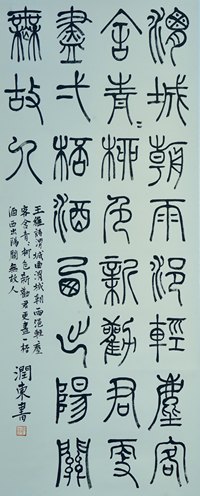 渭城朝雨浥輕塵客
舍青〻柳色新勸君更
盡弌桮酒西出陽關
無故人
王維詩渭城曲渭城朝雨浥輕塵
客舍青〻柳色新勸君更盡一杯
酒西出陽關無故人
潤東書